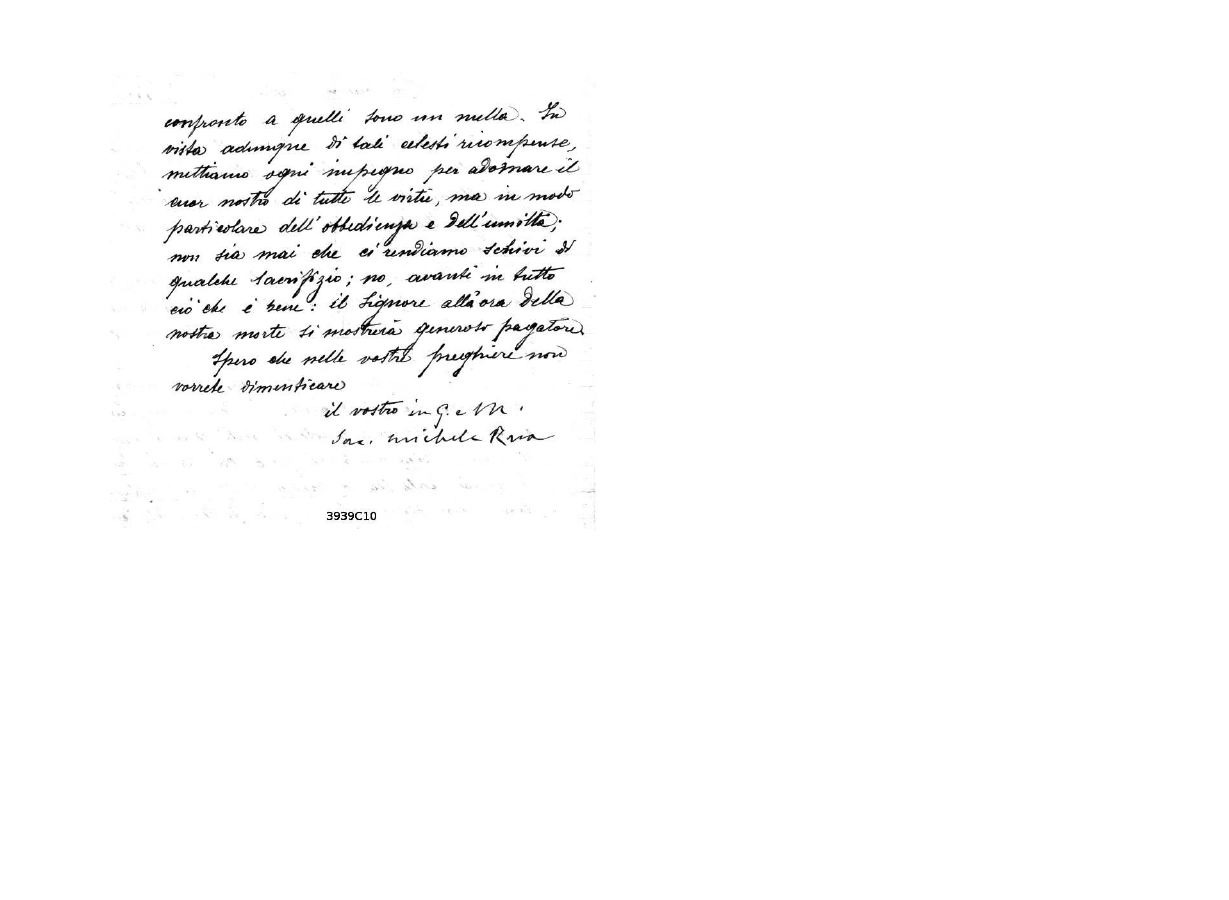 confronto a quelli sono un nulla. In
vista adunque di tali celesti ricompense,
mettiamo ogni impegno per adornare il
cuor nostro di tutte le virtù, ma in modo
particolare dell'obbedienza e dell'umiltà;
non sia mai che ci rendiamo schivi di
qualche sacrifizio; no, avanti in tutto
ciò che è bene: il Signore alla ora della
nostra morte si mostrerà generoso pagatore.
Spero che nelle vostre preghiere non
vorrete dimenticare
il vostro in G. e M.
Sac. Michele Rua
3939C10